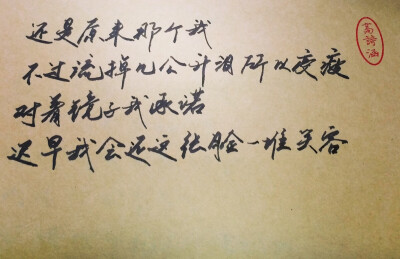 还是原来那个我
不过流掉几公升泪所以变瘦
对着镜子我承诺
迟早我会还这张脸一堆笑容